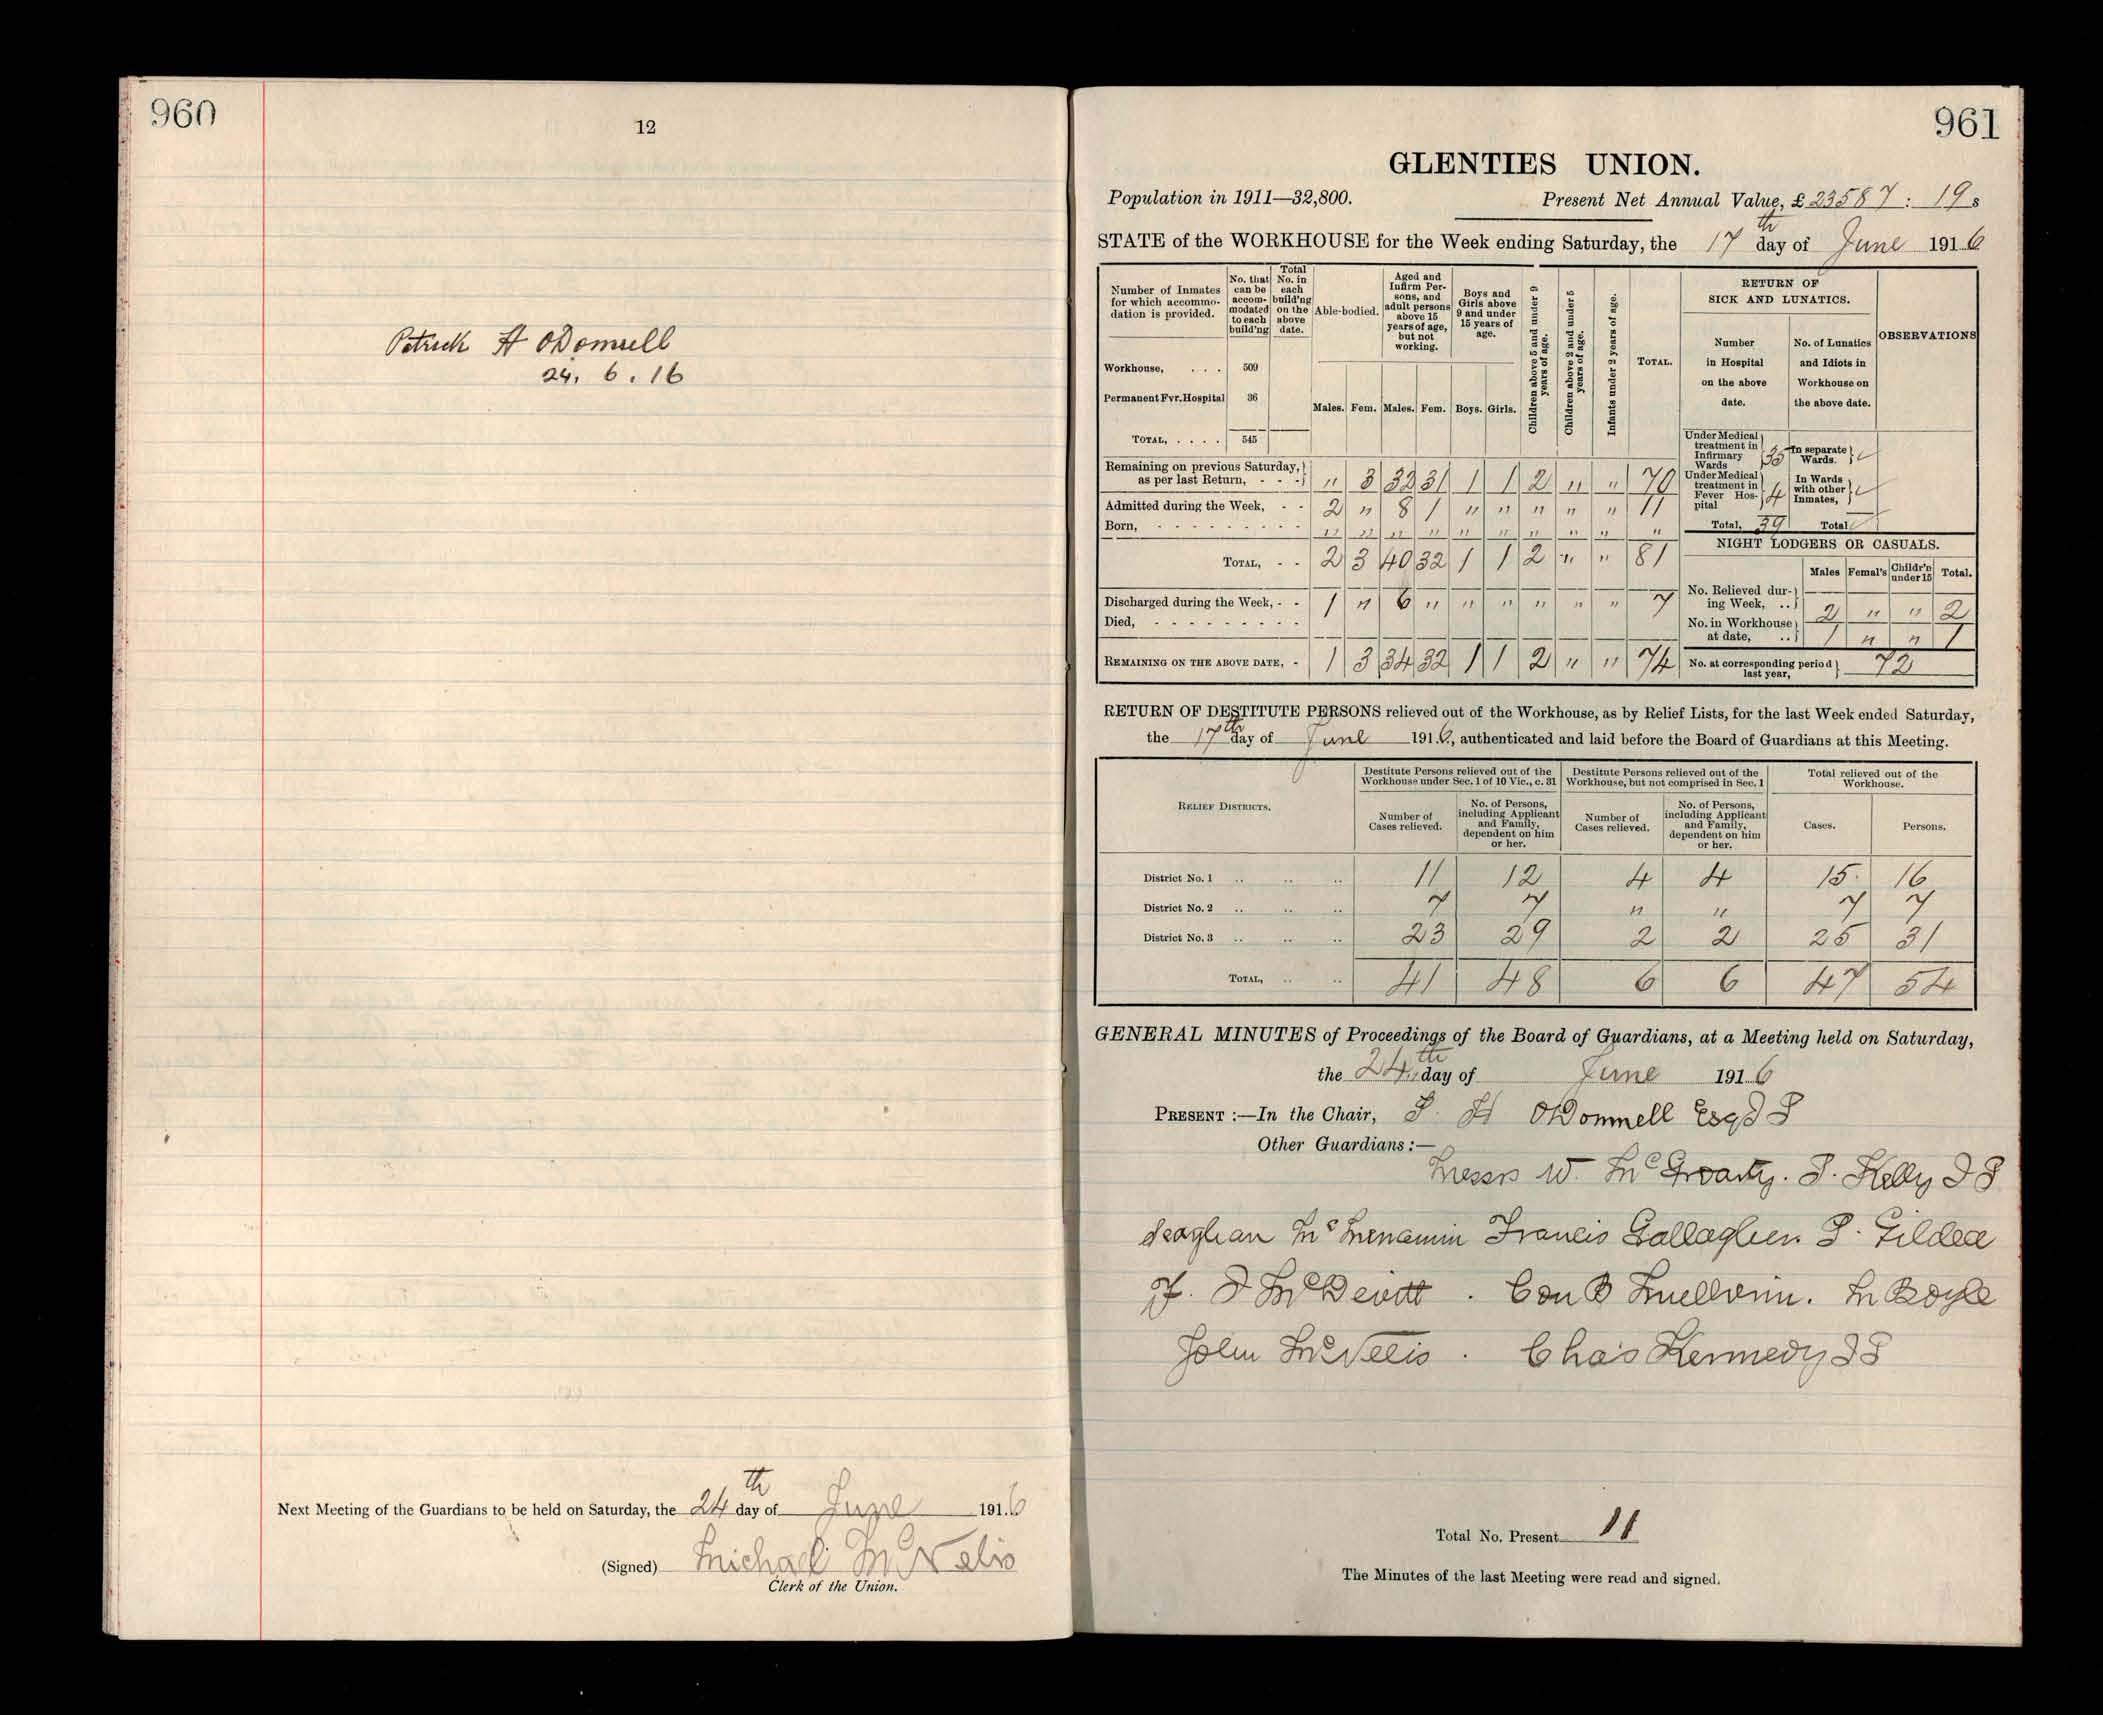 960
12
Patrick H O'Donnell
24. 6. 16
Next Meeting of the Guardians to be held on Saturday, the 24th day of June 1916
(Signed) Michael McNelis
Clerk of the Union.
961
GLENTIES UNION.
Population in 1911—32,800. Present Net Annual Value, £23587 : 19s
STATE of the WORKHOUSE for the Week ending Saturday, the 17th day of June 1916
Number of Inmates for which accommodation is provided. No. that can be accommodated to each build'ng Total No. in each build'ng on the above date. Able-bodied. Aged and Infirm Persons, and adult persons above 15 years of age, but not working. Boys and Girls above 9 and under 15 years of age. Children above 5 and under 9 years of age. Children above 2 and under 5 years of age. Infants under 2 years of age. TOTAL. RETURN OF SICK AND LUNATICS. OBSERVATIONS
Number in Hospital on the above date. No. of Lunatics and Idiots in Workhouse on the above date.
Workhouse, . . . 509
Permanent Fvr. Hospital 36
Males. Fem. Males. Fem. Boys. Girls.
TOTAL, . . . . 545
Remaining on previous Saturday, as per last Return, - - - " 3 32 31 1 1 2 " " 70
Admitted during the Week, - - 2 " 8 1 " " " " " 11
Born, - - - - - - - - - " " " " " " " " " "
TOTAL, - - 2 3 40 32 1 1 2 " " 81
Discharged during the Week, - - 1 " 6 " " " " " " 7
Died, - - - - - - - - -
REMAINING ON THE ABOVE DATE, - 1 3 34 32 1 1 2 " " 74
Under Medical treatment in Infirmary Wards 35 In separate Wards. ✓
Under Medical treatment in Fever Hospital 4 In Wards with other Inmates, ✓
Total, 39 Total ✓
NIGHT LODGERS OR CASUALS.
Males Femal's Childr'n under 15 Total.
No. Relieved during Week, .. 2 " " 2
No. in Workhouse at date, .. 1 " " 1
No. at corresponding period last year, 72
RETURN OF DESTITUTE PERSONS relieved out of the Workhouse, as by Relief Lists, for the last Week ended Saturday,
the 17th day of June 1916, authenticated and laid before the Board of Guardians at this Meeting.
RELIEF DISTRICTS. Destitute Persons relieved out of the Workhouse under Sec. 1 of 10 Vic., c. 31 Destitute Persons relieved out of the Workhouse, but not comprised in Sec. 1 Total relieved out of the Workhouse.
Number of Cases relieved. No. of Persons, including Applicant and Family, dependent on him or her. Number of Cases relieved. No. of Persons, including Applicant and Family, dependent on him or her. Cases. Persons.
District No. 1 .. .. .. 11 12 4 4 15 16
District No. 2 .. .. .. 7 7 " " 7 7
District No. 3 .. .. .. 23 29 2 2 25 31
TOTAL, .. .. 41 48 6 6 47 54
GENERAL MINUTES of Proceedings of the Board of Guardians, at a Meeting held on Saturday,
the 24th day of June 1916
PRESENT :—In the Chair, P. H O'Donnell Esq J P
Other Guardians :—
Messrs W. McGroarty. P. Kelly J P
Seaghan McMenamin Francis Gallagher. P. Gildea
J McDevitt . Con B M Boyle
John McNelis . Cha's Kennedy J P
Total No. Present 11
The Minutes of the last Meeting were read and signed.